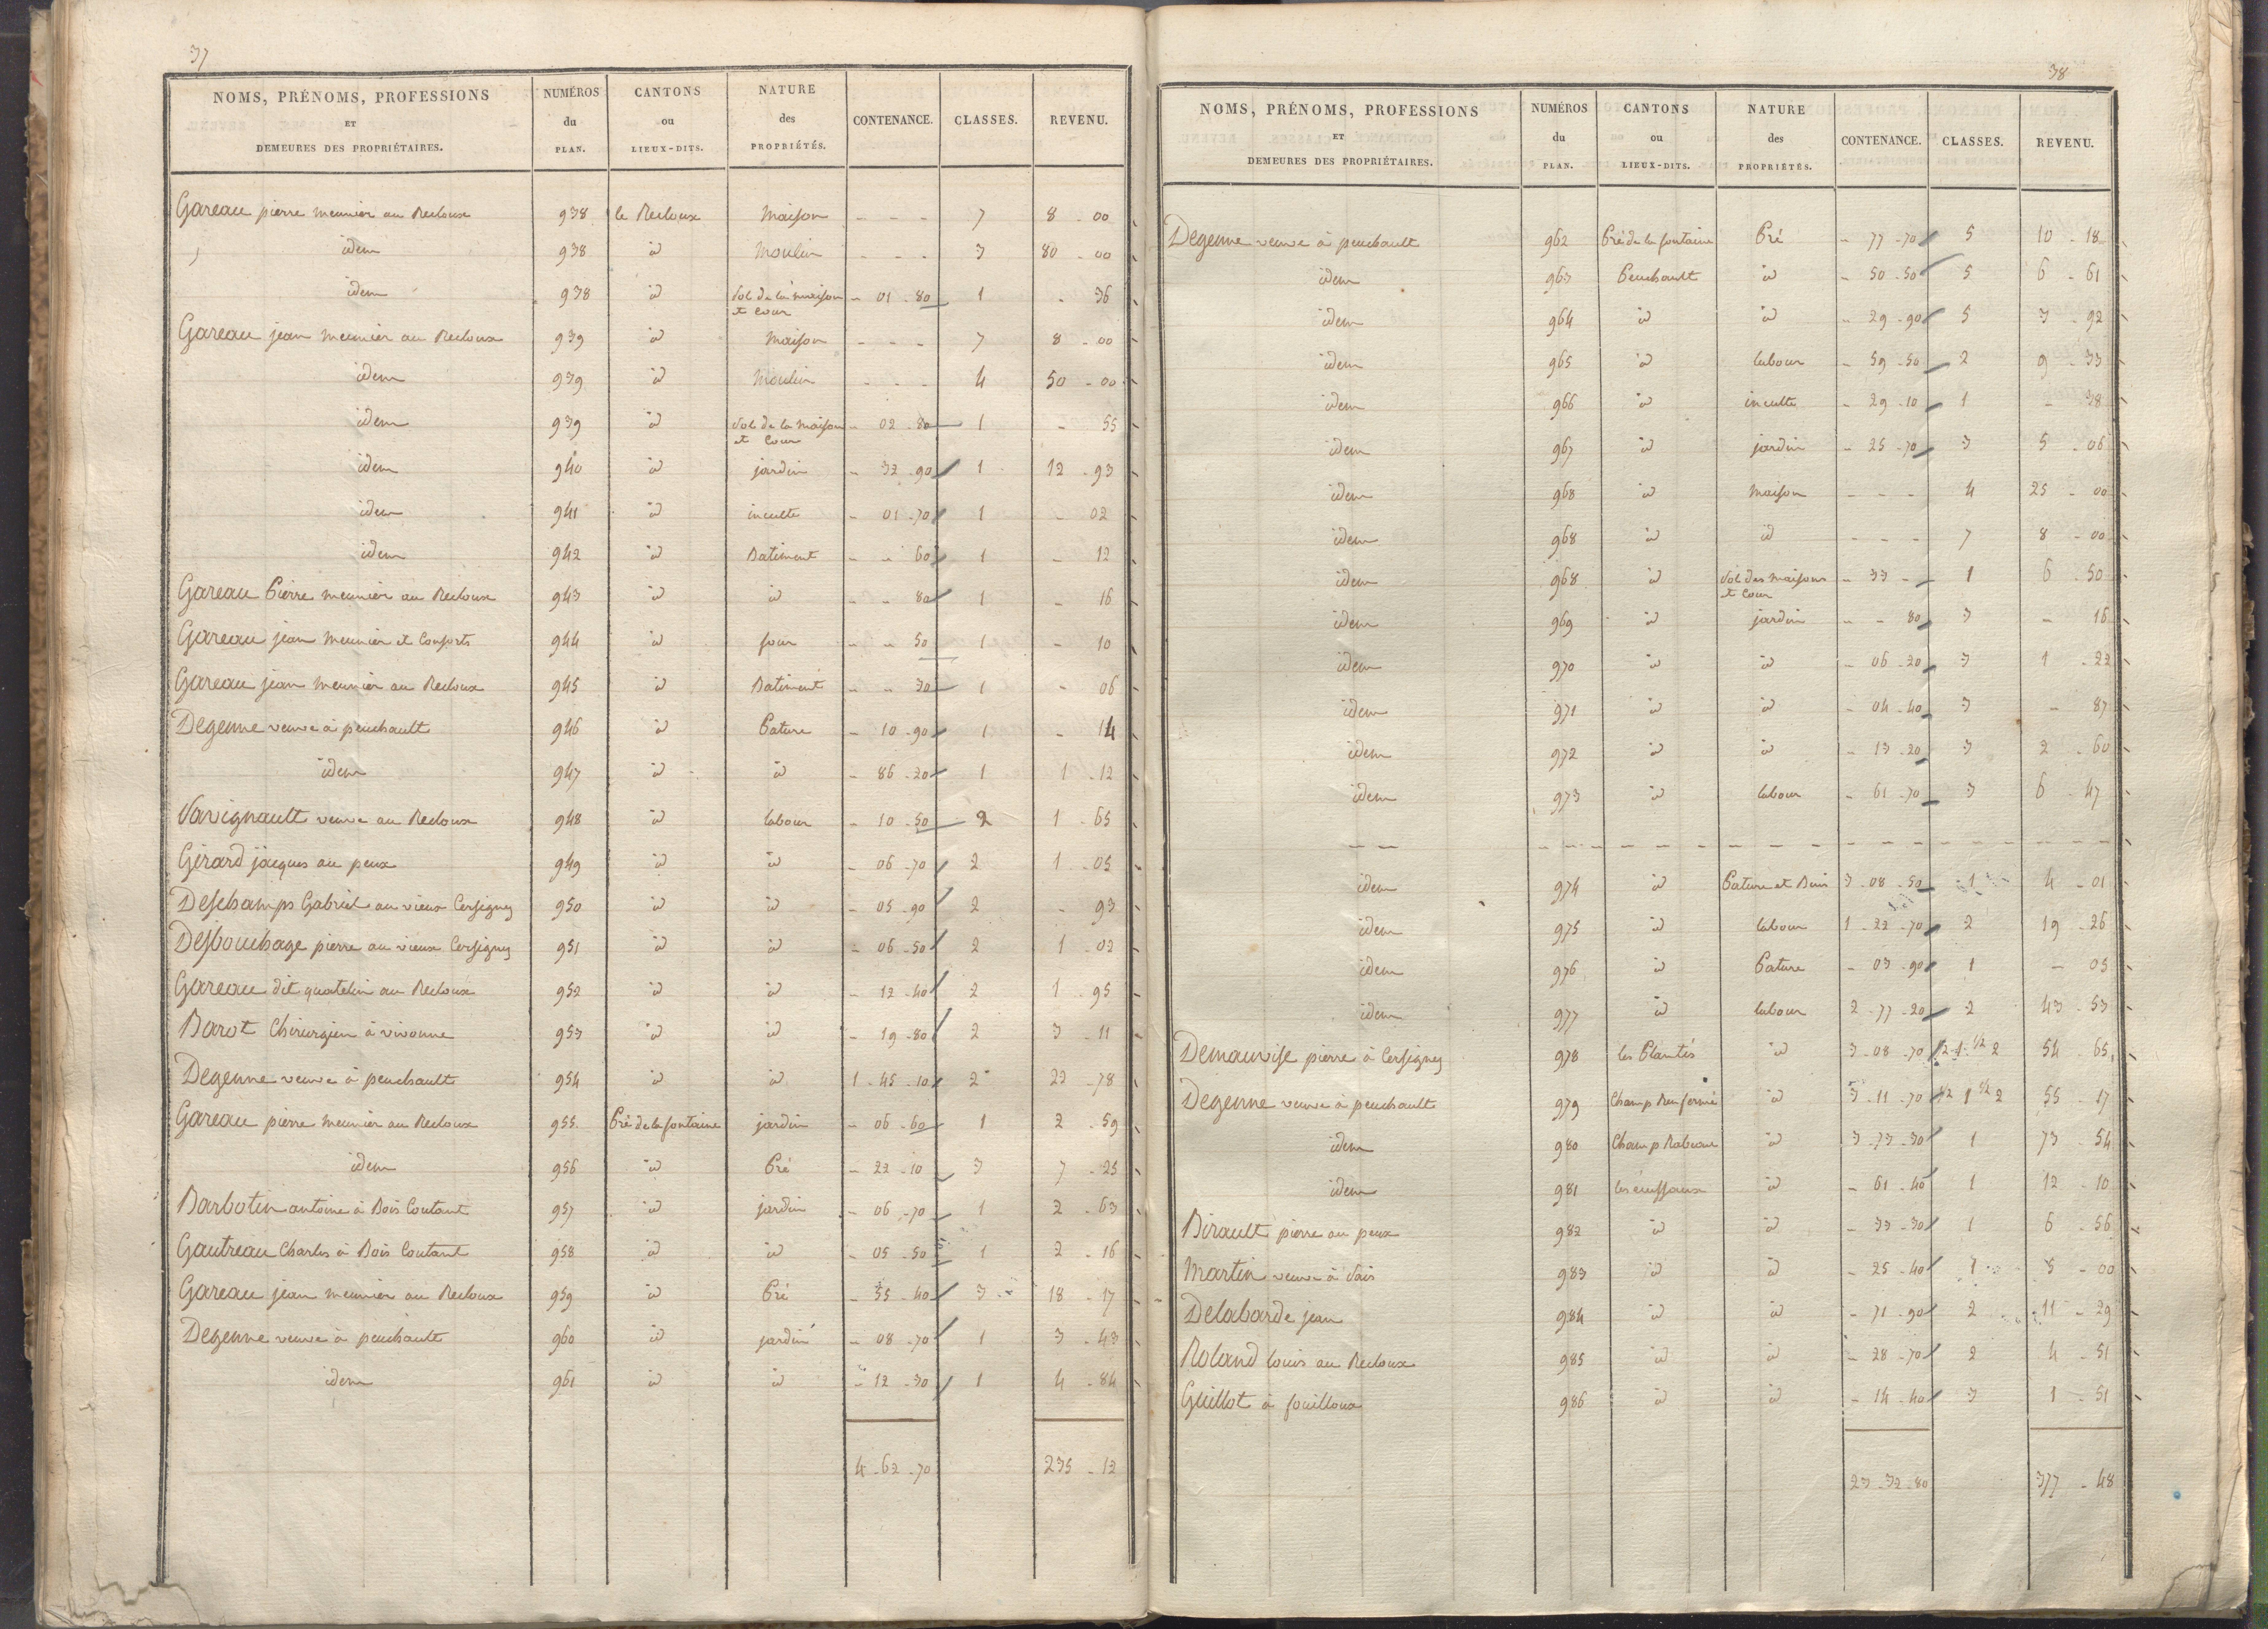 37
NOMS, PRÉNOMS, PROFESSIONS ET DEMEURES DES PROPRIÉTAIRES. NUMÉROS du PLAN. CANTONS ou LIEUX-DITS. NATURE des PROPRIÉTÉS. CONTENANCE. CLASSES. REVENU.
Gareau pierre meunier au Recloux 938 le Recloux Maison - - - 7 8 - 00
idem 938 id Moulin - - - 3 80 - 00
idem 938 id Sol de la maison et Cour - 01 - 80 1 - 36
Gareau jean meunier au Recloux 939 id Maison - - - 7 8 - 00
idem 939 id Moulin - - - 4 50 - 00
idem 939 id Sol de la Maison et Cour - 02 - 80 1 - 55
idem 940 id jardin - 32 - 90 1 12 - 93
idem 941 id inculte - 01 - 70 1 - 02
idem 942 id Batiment - - 60 1 - 12
Gareau Pierre meunier au Recloux 943 id id - - 80 1 - 16
Gareau jean Meunier et Consorts 944 id four - - 50 1 - 10
Gareau jean meunier au Recloux 945 id Batiment - - 30 1 - 06
Degenne veuve à peuchault 946 id Pature - 10 - 90 1 - 14
idem 947 id id - 86 - 20 1 1 - 12
Savignault veuve au Recloux 948 id labour - 10 - 50 2 1 - 65
Girard jacques au peux 949 id id - 06 - 70 2 1 - 05
Deschamps Gabriel au vieux Cersigny 950 id id - 05 - 90 2 - 93
Desbouchage pierre au vieux Cersigny 951 id id - 06 - 50 2 1 - 02
Gareau dit quatelin au Recloux 952 id id - 12 - 40 2 1 - 95
Barot Chirurgien à vivonne 953 id id - 19 - 80 2 3 - 11
Degenne veuve à peuchault 954 id id 1 - 45 - 10 2 22 - 78
Gareau pierre meunier au Recloux 955 Pré de la fontaine jardin - 06 - 60 1 2 - 59
idem 956 id Pré - 22 - 10 3 7 - 25
Barbotin antoine à Bois Coutant 957 id jardin - 06 - 70 1 2 - 63
Gautreau Charles à Bois Coutant 958 id id - 05 - 50 1 2 - 16
Gareau jean meunier au Recloux 959 id Pré - 55 - 40 3 18 - 17
Degenne veuve à peuchault 960 id jardin - 08 - 70 1 3 - 43
idem 961 id id - 12 - 30 1 4 - 84
4 - 62 - 70 235 - 12
38
NOMS, PRÉNOMS, PROFESSIONS ET DEMEURES DES PROPRIÉTAIRES. NUMÉROS du PLAN. CANTONS ou LIEUX-DITS. NATURE des PROPRIÉTÉS. CONTENANCE. CLASSES. REVENU.
Degenne veuve à peuchault 962 Pré de la fontaine Pré - 77 - 70 5 10 - 18
idem 963 Peuchault id - 50 - 50 5 6 - 61
idem 964 id id - 29 - 90 5 3 - 92
idem 965 id labour - 59 - 50 2 9 - 33
idem 966 id inculte - 29 - 10 1 - 38
idem 967 id jardin - 25 - 70 3 5 - 06
idem 968 id Maison - - - 4 25 - 00
idem 968 id id - - - 7 8 - 00
idem 968 id Sol des maisons et Cour - 33 - 1 6 - 50
idem 969 id jardin - - 80 3 - 16
idem 970 id id - 06 - 20 3 1 - 22
idem 971 id id - 04 - 40 3 - 87
idem 972 id id - 13 - 20 3 2 - 60
idem 973 id labour - 61 - 70 3 6 - 47
idem 974 id Pature et Buis 3 - 08 - 50 1 4 - 01
idem 975 id labour 1 - 22 - 70 2 19 - 26
idem 976 id Pature - 03 - 90 1 - 05
idem 977 id labour 2 - 77 - 20 2 43 - 53
Demauvise pierre à Cersigny 978 les Plantés id 3 - 08 - 70 1/2 1 1/2 2 54 - 65
Degenne veuve à peuchault 979 Champ Renfermé id 3 - 11 - 70 1/2 1 1/2 2 55 - 17
idem 980 Champ Rabeau id 3 - 73 - 30 1 73 - 54
idem 981 id - 61 - 40 1 12 - 10
Birault pierre au peux 982 id id - 33 - 30 1 6 - 56
Martin veuve à Vais 983 id id - 25 - 40 1 5 - 00
Delabarde jean 984 id id - 71 - 90 2 11 - 29
Roland louis au Recloux 985 id id - 28 - 70 2 4 - 51
Guillot à fouilloux 986 id id - 14 - 40 3 1 - 51
23 - 32 - 80 377 - 48